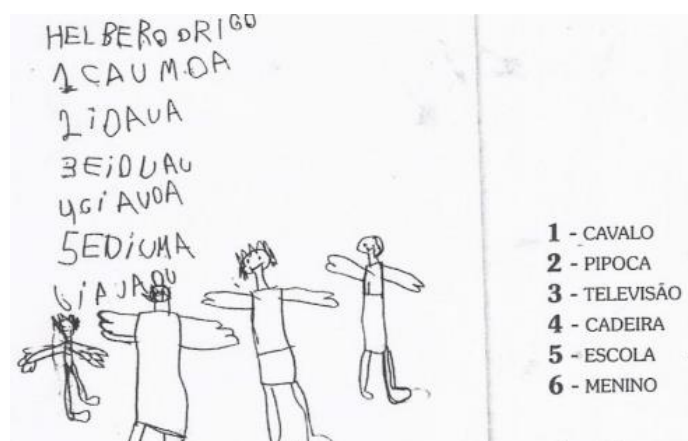 HELBERO DRIGO
1 CAUMOA
2 IDAUA
3 EIDUAU
4 GI AUOA
5 EDIUMA
1 - CAVALO
2 - PIPOCA
3 - TELEVISÃO
4 - CADEIRA
5 - ESCOLA
6 - MENINO